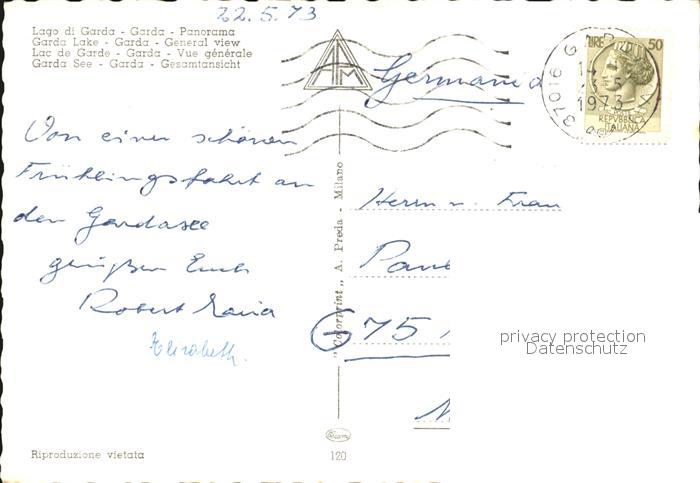 22.5.73
Lago di Garda - Garda - Panorama
Garda Lake - Garda - General view
Lac de Garde - Garda - Vue générale
Garda See - Garda - Gesamtansicht
Von einer schönen
Frühlingsfahrt an
den Gardasee
grüßen Euch
Robert Maria
Elisabeth.
Riproduzione vietata
"Colorprint" A. Preda - Milano
120
Germania
LIRE 50
37016 GARDA
1973
REPVBBLICA
ITALIANA
Herrn u. Frau
G 75
privacy protection
Datenschutz